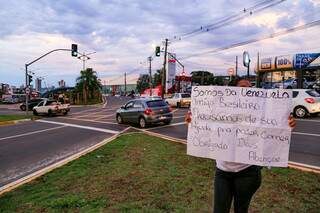 Somos Da Venezuela
Amigo Brasileiro
Precisamos de sua
Ajuda pra poder Comer
Obrigado Deus
Abençoe